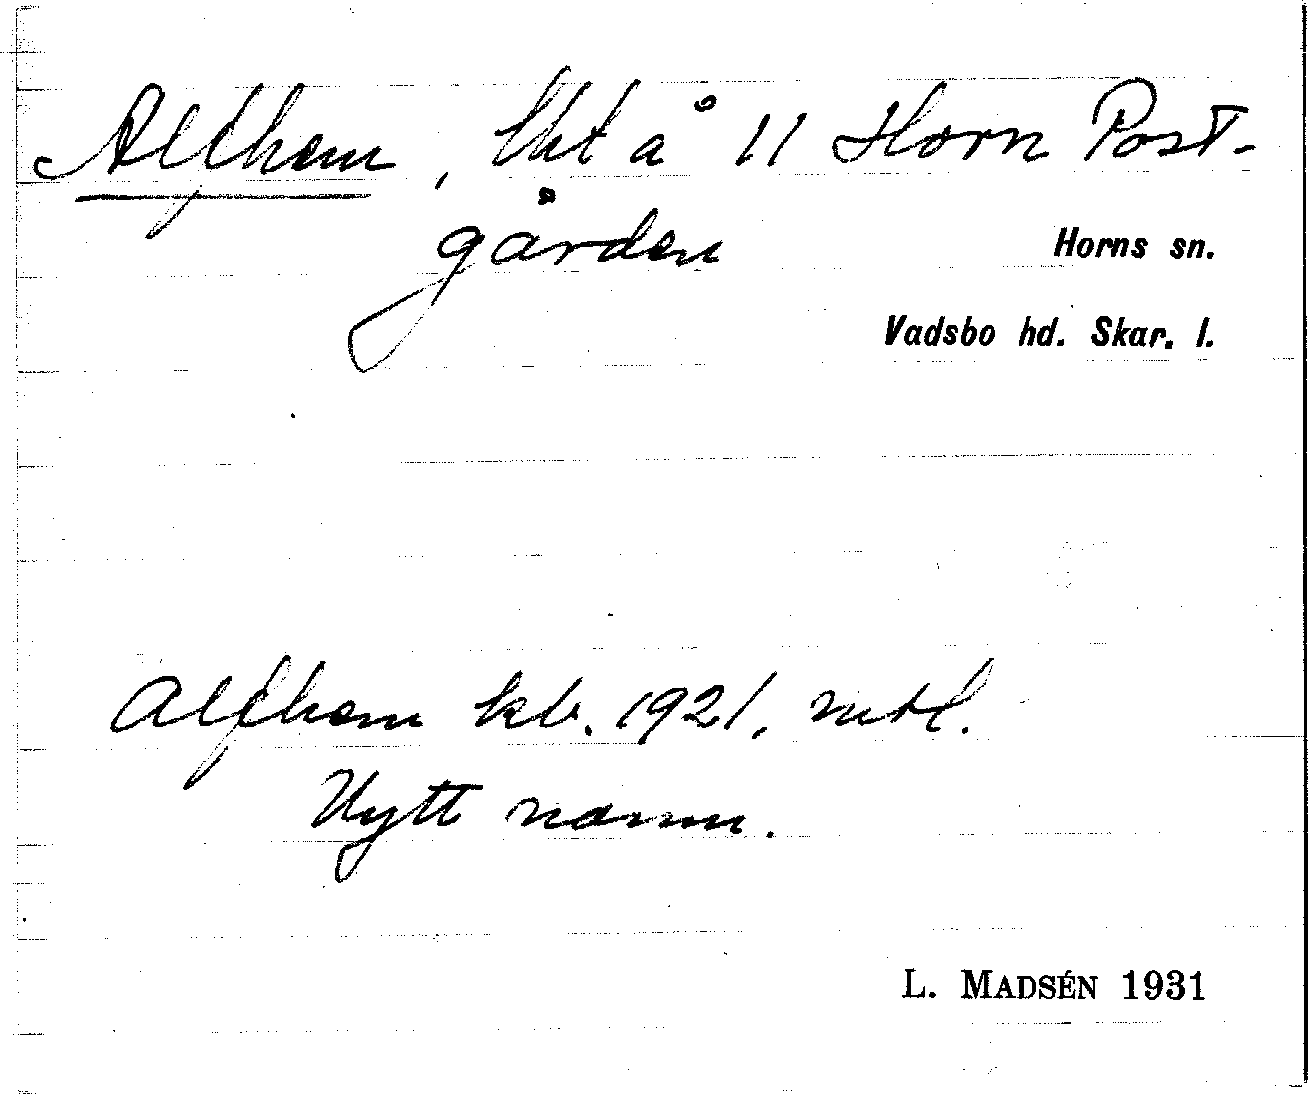 Alfhem, lht å 11 Horn Post-
gården
Horns sn.
Vadsbo hd. Skar. l.
Alfhem kb. 1921, mtl.
Nytt namn.
L. MADSÉN 1931